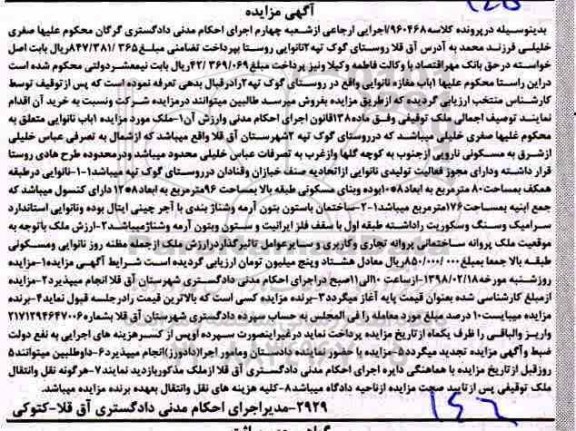 آگهی مزایده
بدینوسیله درپرونده کلاسه ۹۶۰۴۶۸/اجرایی ارجاعی ازشعبه چهارم اجرای احکام مدنی دادگستری گرگان محکوم علیها صفری
خلیلی فرزند محمد به آدرس آق قلا روستای گوک تپه ۲نانوایی روستا بپرداخت تضامنی مبلغ ۸۴۷/۳۸۱/۳۶۵ریال بابت اصل
خواسته درحق بانک مهراقتصاد با وکالت فاطمه وکیلا ونیز پرداخت مبلغ ۴۲/۳۶۹/۰۶۹ریال بابت نیم‌عشردولتی محکوم شده است
دراین راستا محکوم علیها ۱باب مغازه نانوایی واقع در روستای گوک تپه ۲رادرقبال بدهی تعرفه نموده است که پس ازتوقیف توسط
کارشناس منتخب ارزیابی گردیده که ازطریق مزایده بفروش میرسد طالبین میتوانند درمزایده شرکت ونسبت به خرید آن اقدام
نمایند توصیف اجمالی ملک توقیفی وفق ماده۱۳۸قانون اجرای احکام مدنی وارزش آن۱-ملک مورد مزایده ۱باب نانوایی متعلق به
محکوم علیها صفری خلیلی میباشد که درروستای گوک تپه ۲شهرستان آق قلا واقع میباشدکه ازشمال به تصرفی عباس خلیلی
ازشرق به مسکونی نارویی ازجنوب به کوچه گلها وازغرب به تصرفات عباس خلیلی محدود میباشد ودرمحدوده طرح هادی روستا
قرار داشته ودارای مجوز فعالیت تولیدی نانوایی ازاتحادیه صنف خبازان وقنادان درروستای گوک تپه میباشد۱-۱-نانوایی درطبقه
همکف بمساحت۸۰ مترمربع به ابعاد۸*۱۰بوده وبنای مسکونی طبقه بالا بمساحت ۹۶مترمربع به ابعاد۸*۱۲دارای کنسول میباشد که
جمع ابنیه بمساحت۱۷۶مترمربع میباشد۱-۲-ساختمان باستون بتون آرمه وشناژ بندی با آجر چینی ایتال بوده ونانوایی استاندارد
سرامیک وسنگ وسکوریت راداشته طبقه اول با سقف فلز ایرانیت و ستون وبتون آرمه وشناژمیباشد۲-ارزش ملک باتوجه به
موقعیت ملک پروانه ساختمانی پروانه تجاری وکاربری و سایرعوامل تاثیرگذاردرارزش ملک ازجمله مظنه روز نانوایی ومسکونی
طبقه بالا جمعا بمبلغ ۸۵۰/۰۰۰/۰۰۰ریال معادل هشتاد وپنج میلیون تومان ارزیابی گردیده است شرایط آگهی مزایده۱-مزایده
روزشنبه مورخه۱۳۹۸/۰۲/۱۸-ازساعت ۱۰الی۱۱صبح دراجرای احکام مدنی دادگستری شهرستان آق قلا انجام میپذیرد۲-مزایده
ازمبلغ کارشناسی شده بعنوان قیمت پایه آغاز میگردد۳-برنده مزایده کسی است که بالاترین قیمت رادرجلسه قبول نماید۴-برنده
مزایده میبایست۱۰درصد مبلغ مورد معامله را فی المجلس به حساب سپرده دادگستری شهرستان آق قلا بشماره۲۱۷۱۲۹۴۶۴۷۰۰۶
واریز والباقی را ظرف یکماه ازتاریخ مزایده پرداخت نماید درغیراینصورت سپرده اوپس از کسرهزینه های اجرایی به نفع دولت
ضبط وآگهی مزایده تجدید میگردد۵-مزایده با حضور نماینده دادستان ومامور اجرا(دادورز)انجام میپذیرد۶-داوطلبین میتوانند۵
روزقبل ازتاریخ مزایده با هماهنگی دایره اجرای احکام مدنی دادگستری آق قلا ازملک مذکوربازدید نمایند۷-هرگونه نقل وانتقال
ملک توقیفی پس ازتایید صحت مزایده ازناحیه دادگاه میباشد۸-کلیه هزینه های نقل وانتقال بعهده برنده مزایده میباشد.
۲۹۲۹-مدیراجرای احکام مدنی دادگستری آق قلا-کتوکی